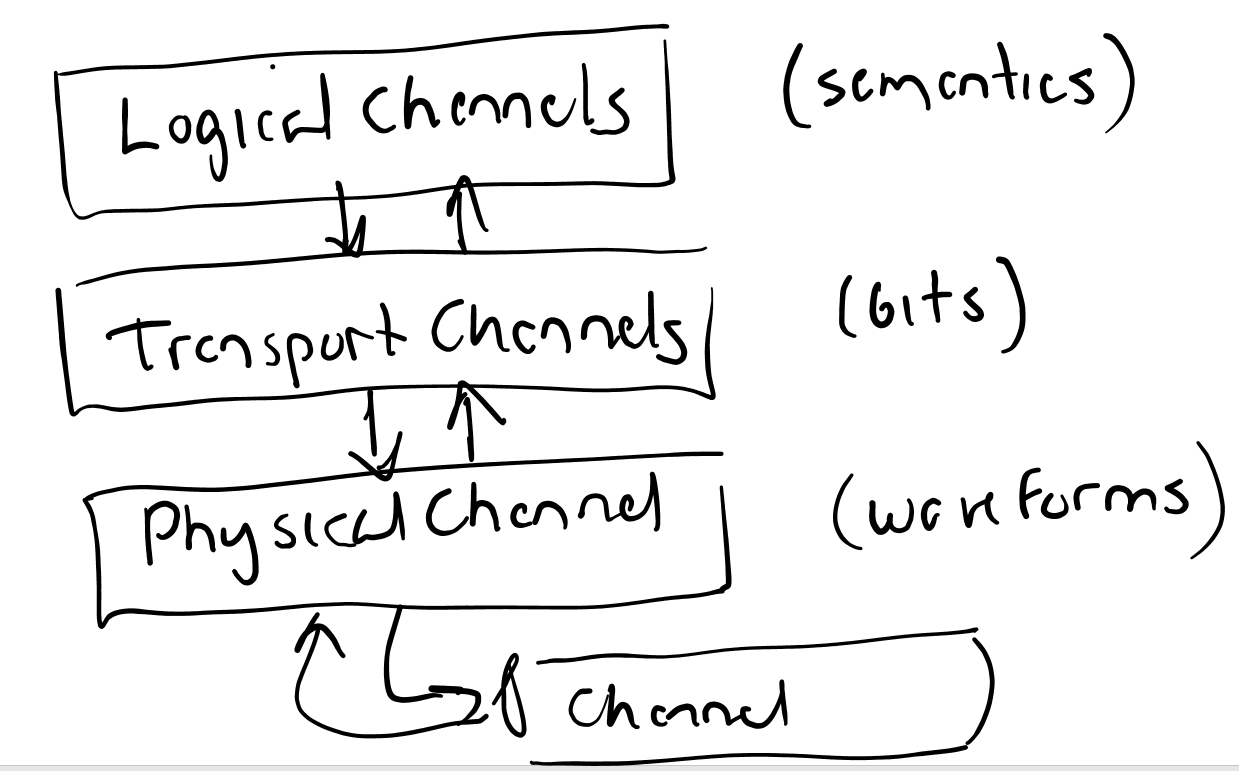 Logical Channels (semantics)
Transport Channels (bits)
Physical Channel (waveforms)
Channel